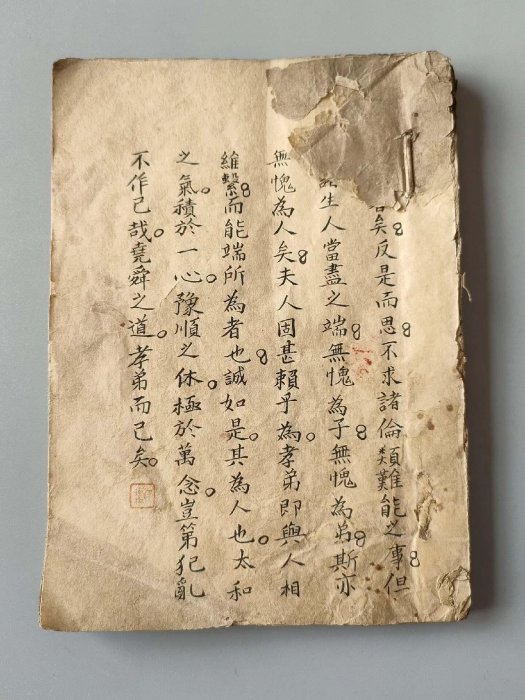 矣反是而思不求諸倫類難能之事但
生人當盡之端無愧為子無愧為弟斯亦
無愧為人矣夫人固甚賴乎為孝弟即與人相
維繫而能端所為者也誠如是其為人也太和
之氣積於一心豫順之休極於萬念豈第犯亂
不作已哉堯舜之道孝弟而已矣